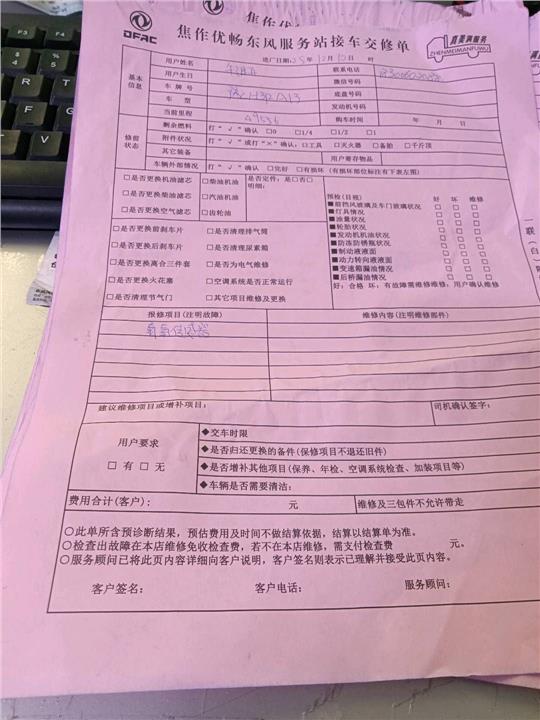 DFAC
焦作优畅东风服务站接车交修单
真美满服务
ZHENMEIMANFUWU
基本信息
用户姓名 进厂日期 25 年 12 月 10 日 时
用户生日 联系电话
车牌号 微信号码
车型 底盘号码
当前里程 49536 发动机号码
购车时间 年 月 日
修前状态
剩余燃料 打“√”确认 □0 □1/4 □1/2 □1
附件状况 打“√”或打“×”确认:□工具 □灭火器 □备胎 □千斤顶
其它装备 用户寄存物品
车辆外部情况 打“√”确认 □完好 □有损坏(有损坏部位标注有下表左图)
□是否更换机油滤芯 □柴油机油 是否定件:是□否□
□是否更换柴油滤芯 □汽油机油 明细:
□是否更换空气滤芯 □齿轮油
□是否更换前刹车片 □是否清理排气筒
□是否更换后刹车片 □是否清理尿素箱
□是否更换离合三件套 □是否为电气维修
□是否更换火花塞 □空调系统是否正常运行
□是否清理节气门 □其它项目维修及更换
预检(目视) 好 坏 维修
■前挡风玻璃及车门玻璃状况 □ □ □
■灯具情况 □ □ □
■油量状况 □ □ □
■轮胎状况 □ □ □
■发动机机油状况 □ □ □
■防冻防锈瓶状况 □ □ □
■制动液液面 □ □ □
■动力转向液液面 □ □ □
■变速箱漏油情况 □ □ □
■后桥漏油情况 □ □ □
好:合格 坏:有故障需维修维修:用户确认维修
报修项目(注明故障) 维修内容(注明维修部件)
氧氮传感器
建议维修项目或增补项目: 司机确认签字:
用户要求
□ 有 □ 无
◆交车时限
◆是否归还更换的备件(保修项目不退还旧件)
◆是否增补其他项目(保养、年检、空调系统检查、加装项目等)
◆车辆是否需要清洁:
费用合计(客户): 元 维修及三包件不允许带走
○此单所含预诊断结果,预估费用及时间不做结算依据,结算以结算单为准。
○检查出故障在本店维修免收检查费,若不在本店维修,需支付检查费 元。
○服务顾问已将此页内容详细向客户说明,客户签名则表示已理解并接受此页内容。
客户签名: 客户电话: 服务顾问:
一联(白)